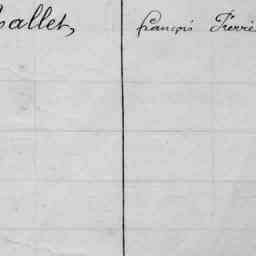 allet, François Pierre